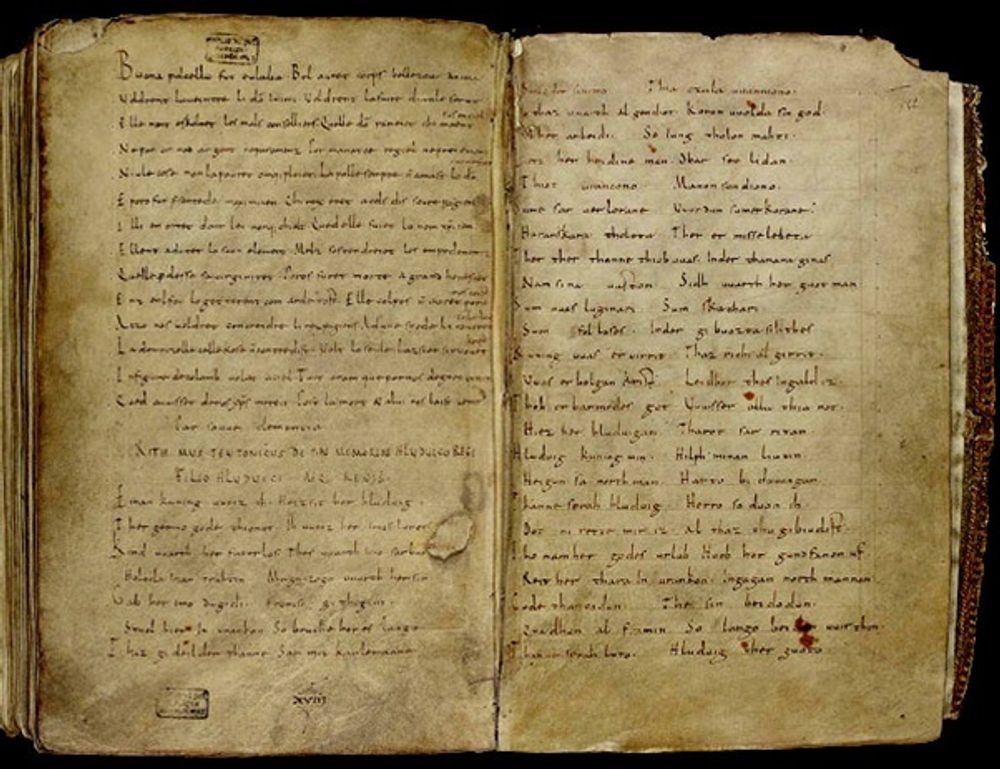 Buona pulcella fut eulalia. Bel auret corps bellezour anima
Voldrent la ueintre li dō inimi. Voldrent la faire diaule seruir
Elle nont eskoltet les mals conselliers. Quelle dō raneiet chi maent
Ne por or ned argent ne paramenz. Por manatce regiel ne preiement
Niule cose non la pouret omqi pleier. La polle sempre ñ amast lo dō
E poro fut presentede maximiien. Chi rex eret a cels dis soure pagiens
Il li enortet dont lei nonqi chielt. Qued elle fuiet lo nom xp̄iien
Ellent adunet lo suon element. Melz sostendreiet les empedementz
Quelle perdesse sa uirginitet. Poros furet morte a grand honestet
Enz enl fou lo getterent com arde tost. Elle colpes ñ auret poro
Aczo nos uoldret concreidre li rex pagiens. Ad une spede li roueret
La domnizelle celle kose ñ contredist. Volt lo seule lazsier si ruouet
In figure de colomb uolat a ciel. Tuit oram que por nos degnet preier
Qued auuisset de nos xp̄s mercit. Post la mort & a lui nos laist uenir
Par souue clementia
RITHMUS TEUTONICUS DE PIAE MEMORIAE HLUDUICO REGE
FILIO HLUDUICI AEQ REGIS.
Einan kuning uueiz ih. Heizsit her hluduig
Ther gerno gode thionot. Ih uueiz her imos lonot
Kind uuarth her faterlos. Thes uuarth imo sar buoz
Holoda inan truhtin Magaczogo uuarth her sin
Gab her imo dugidi. Fronisc githigini
Stuol hier in urankon. So bruche her es lango
Thaz gideilder thanne. Sar mit karlemanne
XVIII
Thia czala uuunniono.
So thaz uuarth al gendiot. Koron uuolda sin god.
Ob her arbeidi. So iung tholon mahti.
Lietz her heidine man. Obar seo lidan
Thiot urancono Manon sundiono.
Sume sar uerlorane Uuurdun sumerkorane
Haranskara tholota Ther er misselebeta
Ther ther thanne thiob uuas. Inder thanana ginas
Nam sina uaston Sidh uuarth her guot man
Sum uuas luginari Sum skachari
Sum fol loses. Inder gibuozta sih thes
Kuning uuas eruirrit Thaz richi al girrit.
Uuas erbolgan krist. Leidhor thes ingald iz
Thoh erbarmedes got Uuisser alla thia not.
Hiez her hluduigan Tharot sar ritan.
Hluduig kuning min. Hilph minan liutin
Heigun sa northman Harto biduuungan
Thanne sprah hluduig Herro so duon ih
Dot ni rette mir iz al thaz thu gibiudist
Tho nam her godes urlub Huob her gundfanon uf.
Reit her thara in urankon. Ingagan northmannon.
Gode thancodun The sin beidodun.
Quadhun al fromin So lango beidon uuir thin.
Thanne sprah luto. Hluduig ther guoto